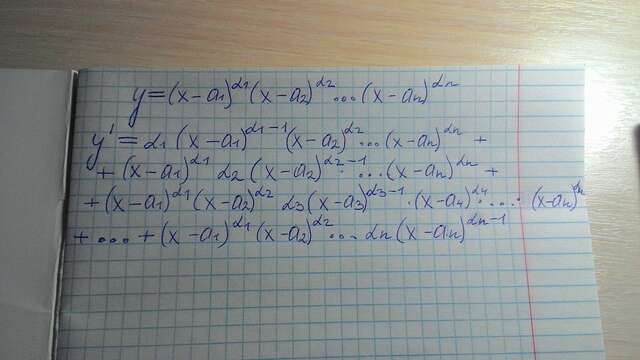 y=(x-a₁)^α₁(x-a₂)^α₂ ...(x-aₙ)^αₙ
y' = α₁(x-a₁)^(α₁-1) (x-a₂)^α₂ ...(x-aₙ)^αₙ +
+ (x-a₁)^α₁ α₂(x-a₂)^(α₂-1) · ...(x-aₙ)^αₙ +
+(x-a₁)^α₁(x-a₂)^α₂ α₃(x-a₃)^(α₃-1) ·(x-a₄)^α₄ · ... · (x-aₙ)^αₙ
+ ... + (x-a₁)^α₁(x-a₂)^α₂ ... αₙ(x-aₙ)^(αₙ-1)